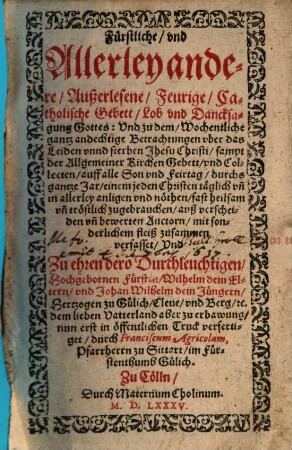 Fürstliche/ vnd
Allerley ande-
re/ Außerlesene/ Feurige/ Ca-
tholische Gebett/ Lob vnd Dancksa-
gung Gottes: Vnd zu dem/ Wochentliche
gantz andechtige Betrachtungen vber das
Leiden vnnd sterben Jhesu Christi/ sampt
der Allgemeiner Kirchen Gebett/ vnd Col-
lecten/ auff alle Son vnd Feirtag/ durchs
gantze Jar/ einem jeden Christen täglich vn̄
in allerley anligen vnd nöthen/ fast heilsam
vn̄ tröstlich zugebrauchen/ auß verschei-
den vn̄ bewerten Auctorn/ mit son-
derlichem fleiß zusammen
verfasset/ Vnd
Zu ehren dero Durchleuchtigen/
Hochgebornen Fürsten/ Wilhelm dem El-
tern/ vnd Johan Wilhelm dem Jüngern/
Hertzogen zu Gülich/ Cleue/ vnd Berg/ ꝛc.
dem lieben Vatterland aber zu erbawung/
nun erst in öffentlichen Truck verferti-
get/ durch Franciscum Agricolam,
Pfarrherrn zu Sittart/ im Für-
stenthumb Gülich.
Zu Cölln/
Durch Maternum Cholinum.
M. D. LXXXV.